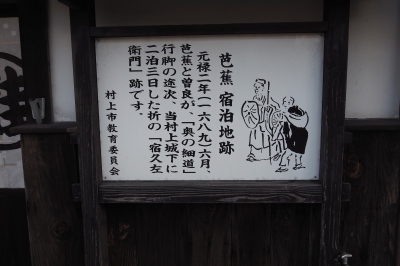 芭蕉 宿泊地跡
元禄二年(一六八九)六月、
芭蕉と曽良が、「奥の細道」
行脚の途次、当村上城下に
二泊三日した折の「宿久左
衛門」跡です。
村上市教育委員会